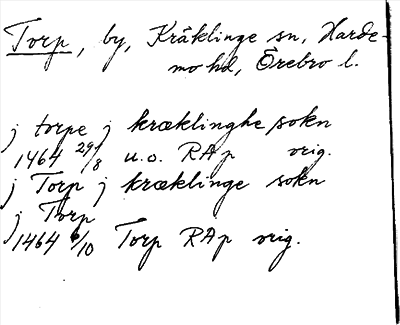 Torp, by, Kräklinge sn, Harde-
mo hd, Örebro l.
j torpe j kræklinghe sokn
1464 29/8 u.o. RAp orig.
j Torp j kræklinge sokn
j Torp
1464 6/10 Torp RAp orig.